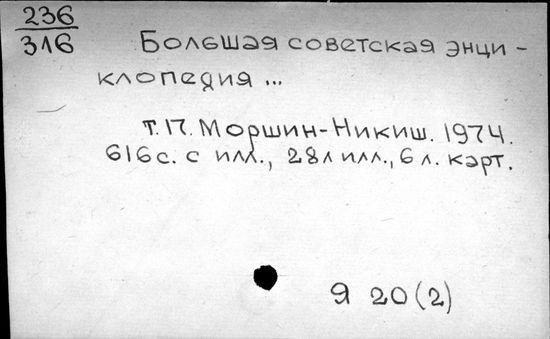 236
316
Большая советская энци-
клопедия ...
т.17. Моршин-Никиш. 1974.
616с. с илл., 28л илл., 6 л. карт.
Я 20(2)